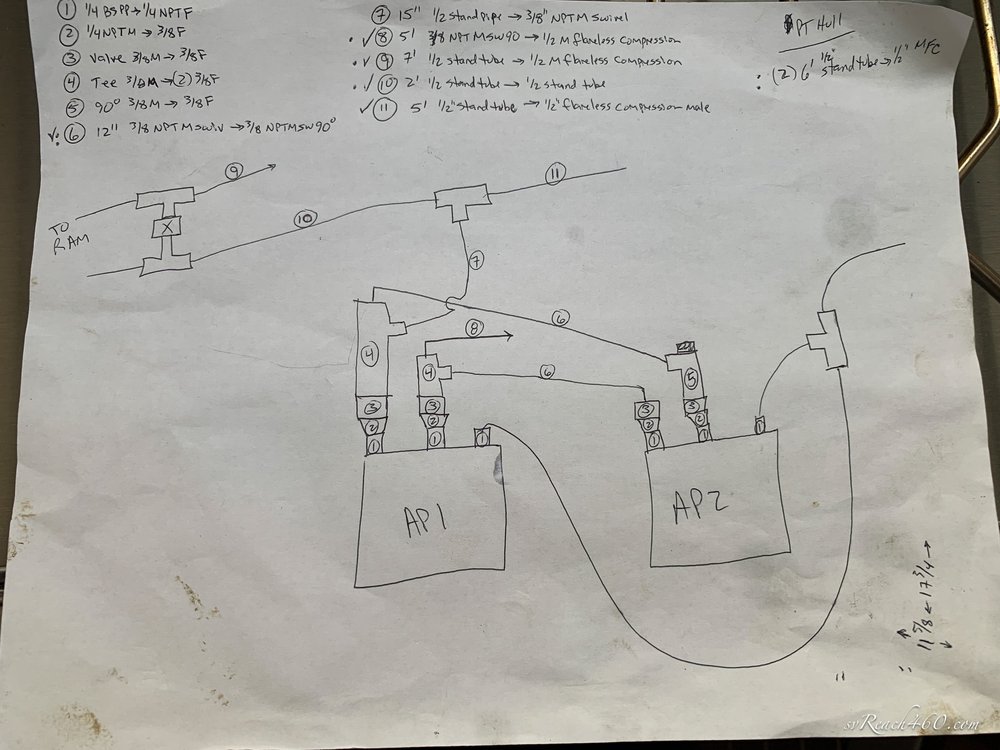 ① 1/4 BSPP → 1/4 NPTF
② 1/4 NPTM → 3/8F
③ Valve 3/8M → 3/8F
④ Tee 3/8M → (2) 3/8F
⑤ 90° 3/8M → 3/8F
✓: ⑥ 12" 3/8 NPTM swiv → 3/8 NPTMSW 90°
⑦ 15" 1/2 standpipe → 3/8" NPTM swivel
. ✓ ⑧ 5' 3/8 NPTMSW90 → 1/2 M flareless compression
. ✓ ⑨ 7' 1/2 standtube → 1/2 M flareless compression
. ✓ ⑩ 2' 1/2 standtube → 1/2 standtube
✓ ⑪ 5' 1/2" standtube → 1/2" flareless compression male
PT Hull
: (2) 6' 1/2" standtube → 1/2" MFC
⑨
TO
RAM
X
⑩
⑪
⑦
⑥
⑧
④
④
⑥
⑤
③
③
③
③
②
②
②
②
①
①
①
①
①
①
AP1
AP2
11 5/8 ← 17 3/4 →
svReach460.com